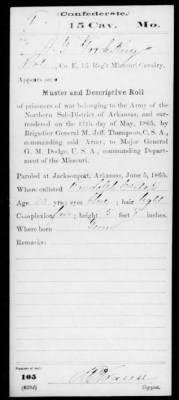 Confederate.
15 Cav. Mo.
Co. E, 15 Reg't Missouri Cavalry.
Appears on a
Muster and Descriptive Roll
of prisoners of war belonging to the Army of the
Northern Sub-District of Arkansas, and sur-
rendered on the 11th day of May, 1865, by
Brigadier General M. Jeff. Thompson, C. S. A.,
commanding said Army, to Major General
G. M. Dodge, U. S. A., commanding Depart-
ment of the Missouri.
Paroled at Jacksonport, Arkansas, June 5, 1865.
Where enlisted Randolph
Age yrs; eyes blue; hair light
Complexion fair; height 5 feet inches.
Where born Tenn
Remarks:
Number of roll:
105
(639d) Copyist.